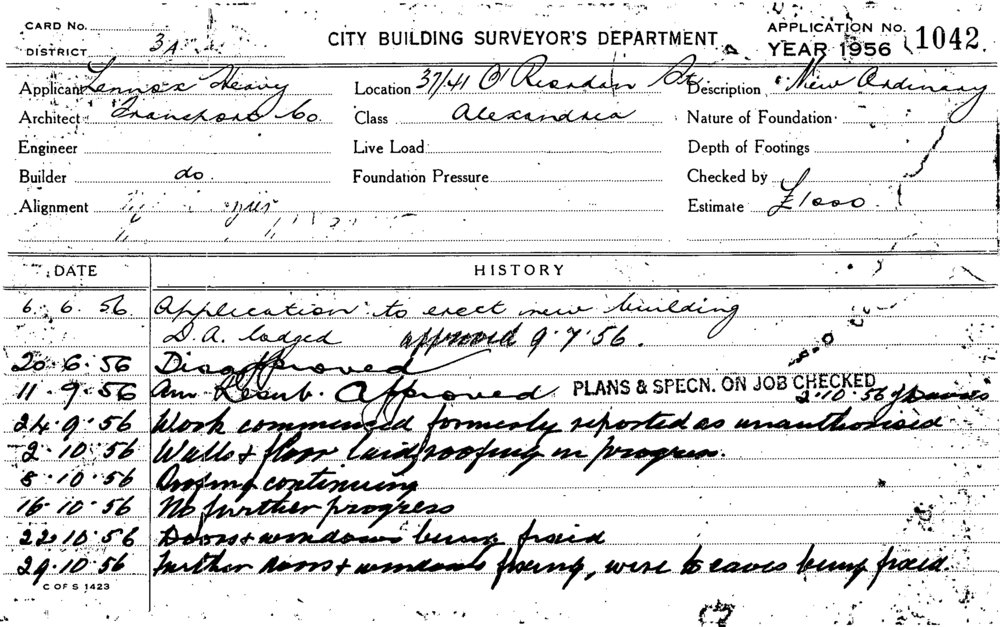 CARD No.
DISTRICT 3A
CITY BUILDING SURVEYOR'S DEPARTMENT
APPLICATION No. 1042
YEAR 1956
Applicant Lennox Heavy
Location 37/41 O'Riordan St.
Description New Ordinary
Architect Transport Co
Class Alexandria
Nature of Foundation
Engineer
Live Load
Depth of Footings
Builder do.
Foundation Pressure
Checked by
Alignment
Estimate £1000
DATE HISTORY
6. 6. 56. Application to erect new building
D.A. lodged approved 9.7.56.
20.6.56 Disapproved
11.9.56 Am Resub. Approved PLANS & SPECN. ON JOB CHECKED
2.10.56 J Davis
24.9.56 Work commenced formerly reported as unauthorised
2.10.56 Walls & floor laid, roofing in progress.
8.10.56 Roofing continuing
16.10.56 No further progress
22.10.56 Doors & windows being fixed
29.10.56 Further doors & windows fixing, wire to eaves being fixed.
C OF S 1423